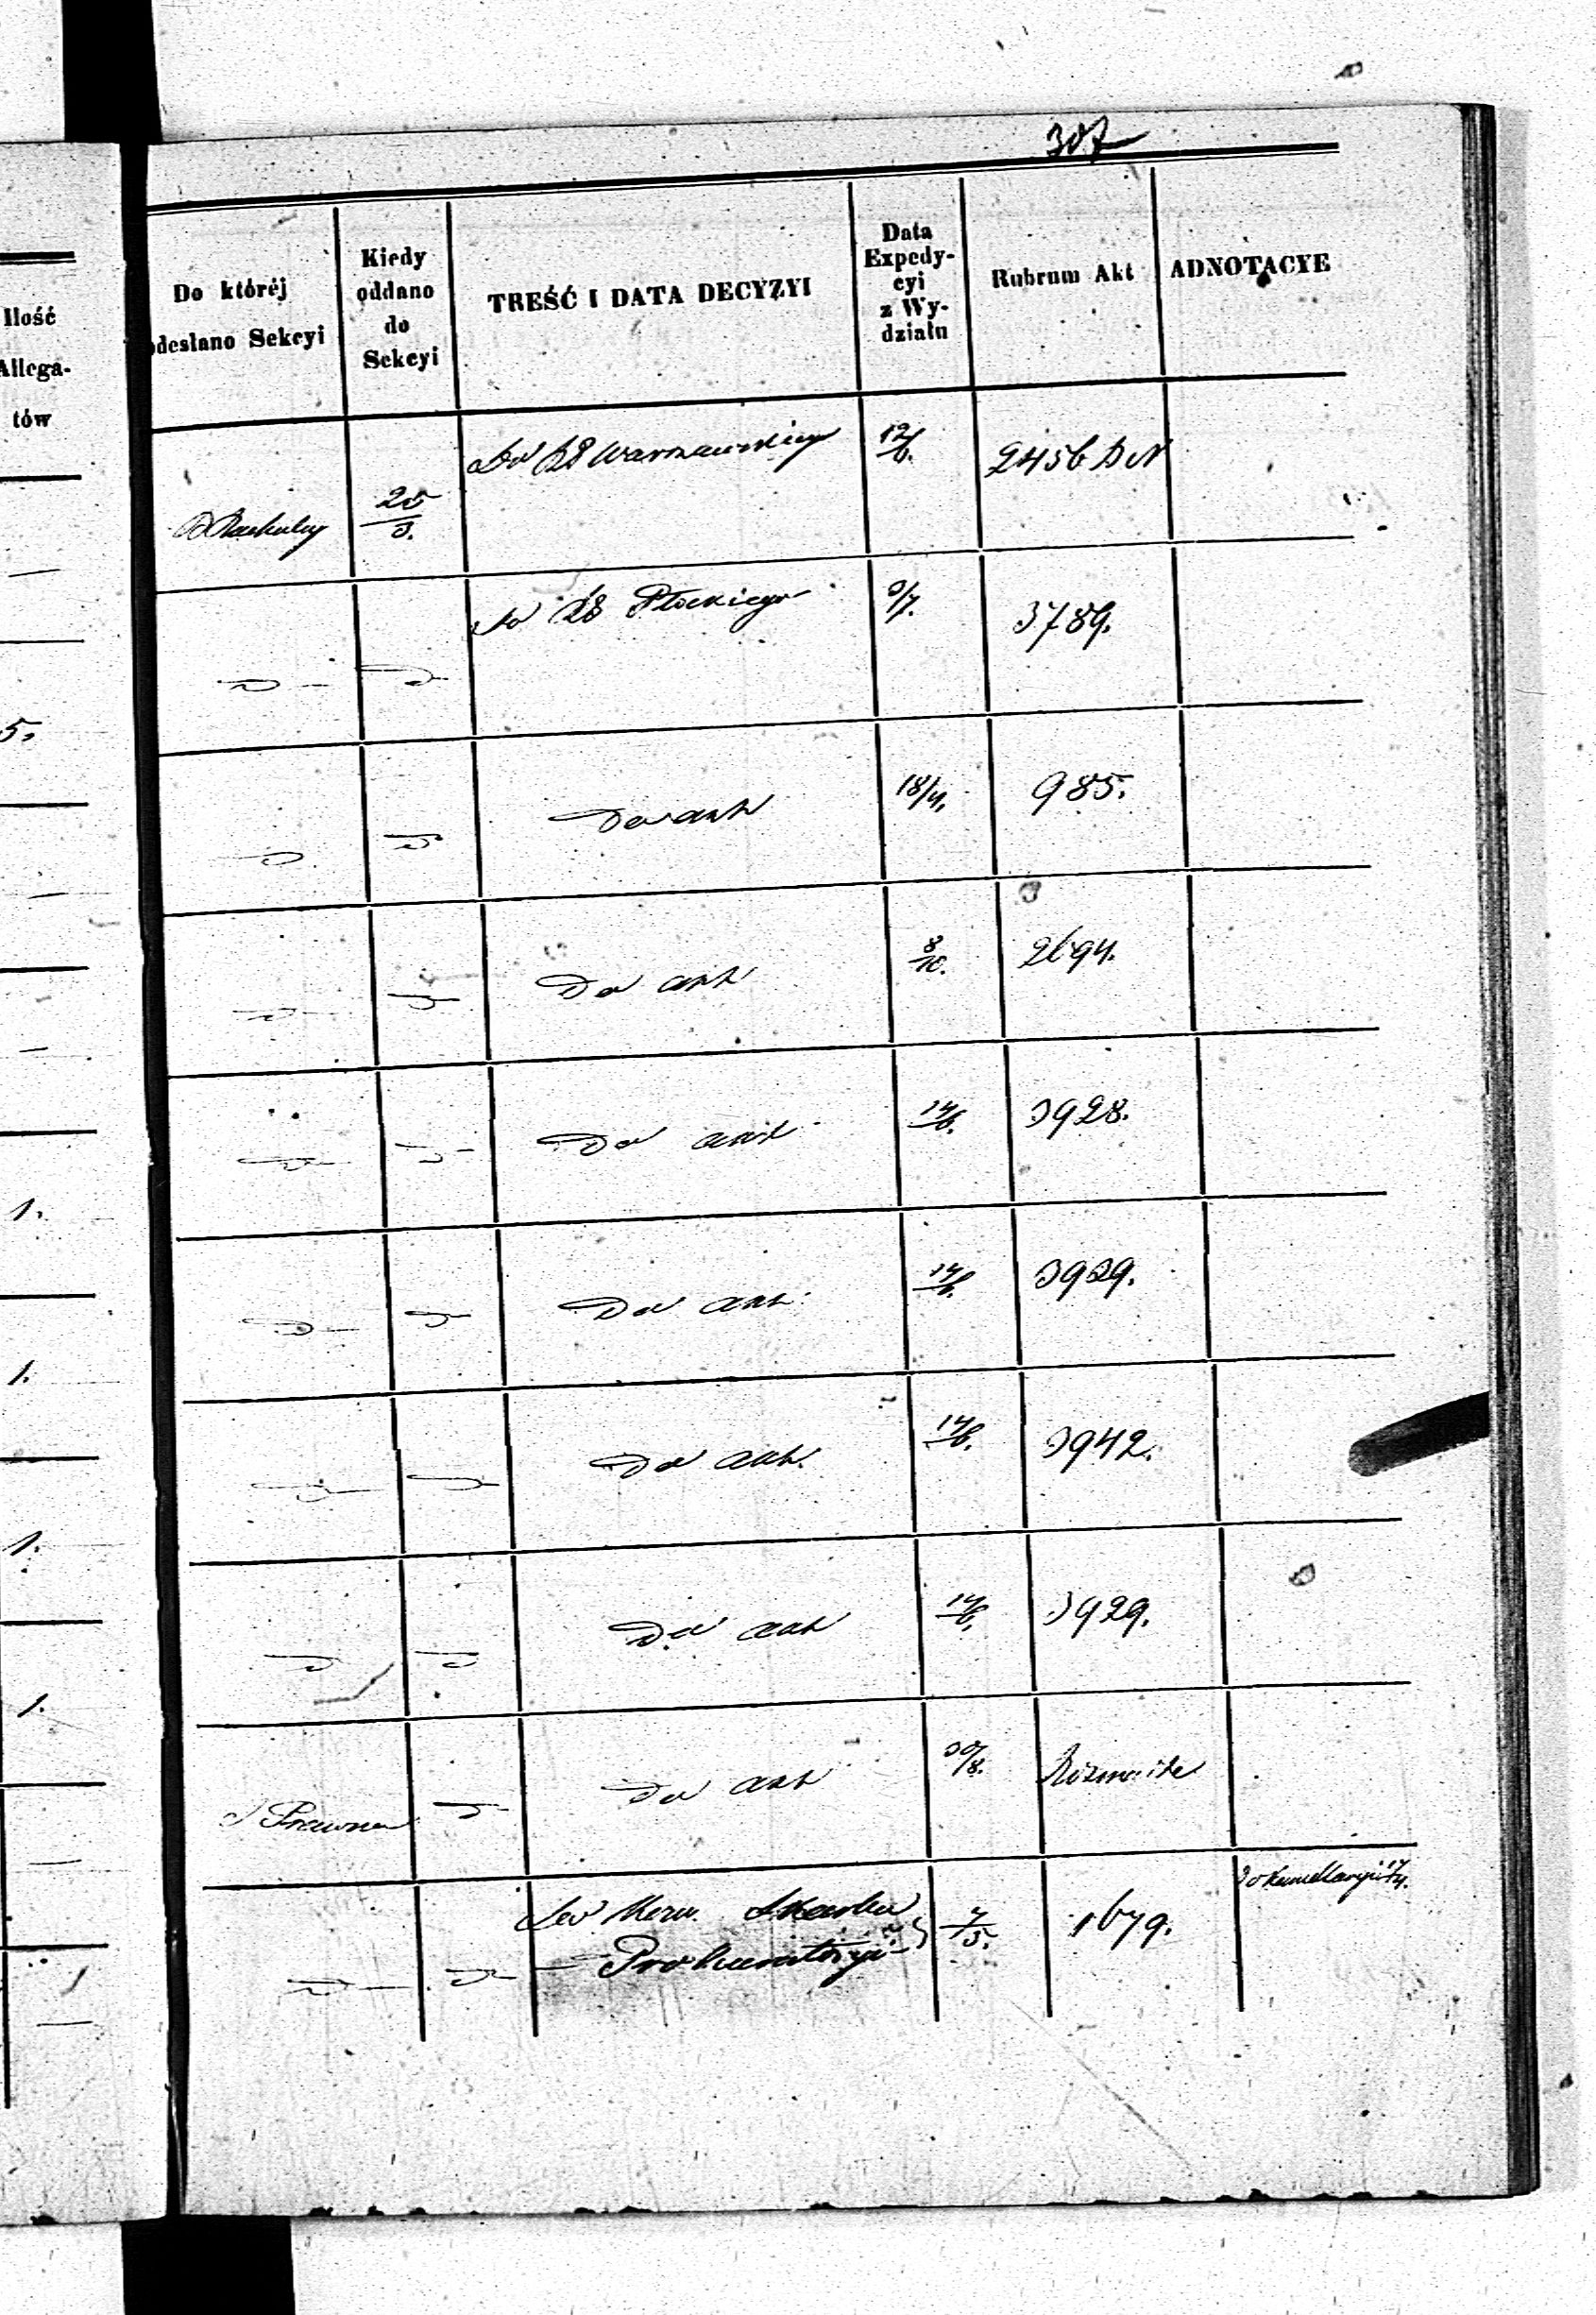 307
Ilość
Allega-
tów
Do któréj
odesłano Sekcyi
Kiedy
oddano
do
Sekcyi
TREŚĆ I DATA DECYZYI
Data
Expedy-
cyi
z Wy-
działu
Rubrum Akt
ADNOTACYE
25/3.
Do Warszawskiego
12/6.
2456 D N
5.
Do Płockiego
3/7.
3789.
Do akt
18/4.
985.
Do akt
8/10.
2694.
1.
Do akt
14/6.
3928.
1.
Do akt
14/6.
3929.
1.
Do akt
14/6.
3942.
1.
Do akt
14/6.
3929.
Prawna
Do akt
30/8.
Rozmaite
Do Skarbu
Prokuratoryi
7/5.
1679.
Do Kancellaryi